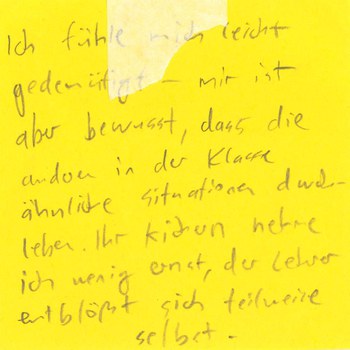 Ich fühle mich leicht
gedemütigt – mir ist
aber bewusst, dass die
andern in der Klasse
ähnliche situationen durch-
leben. Ihr kichern nehme
ich wenig ernst, der Lehrer
entblößt sich teilweise
selbst.